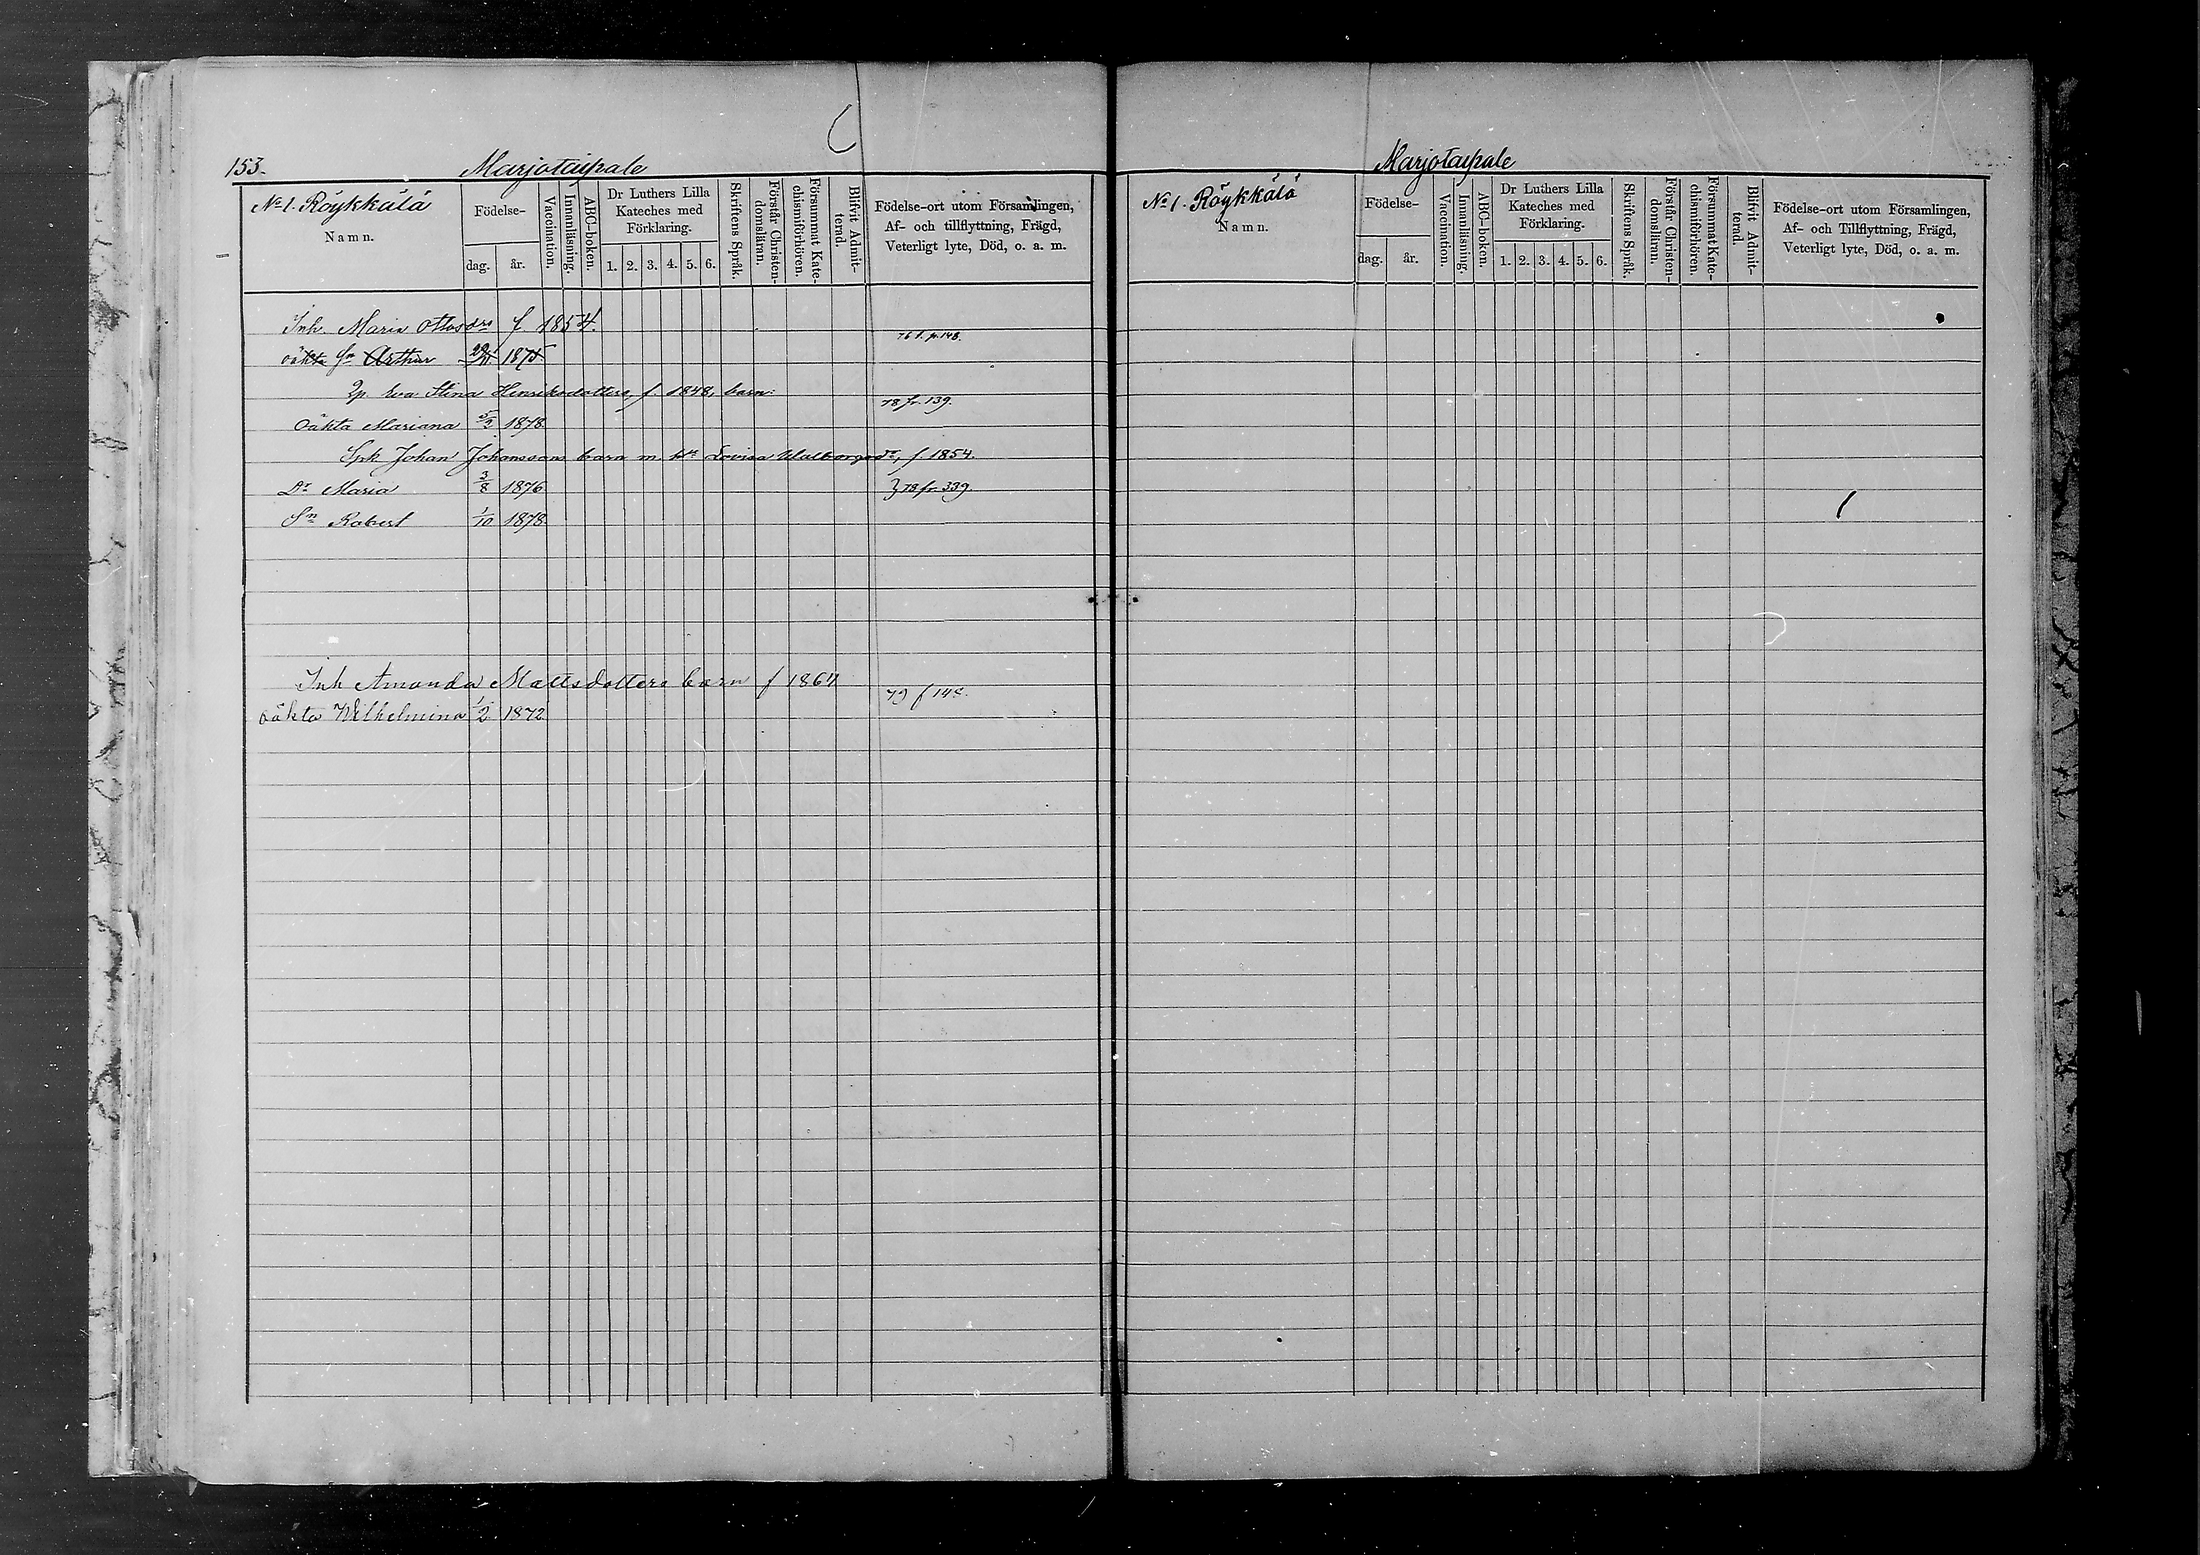 153.
Marjotaipale
No 1. Röykkälä
Namn.
Födelse-
dag.
år.
Vaccination.
Innanläsning.
ABC-boken.
Dr Luthers Lilla
Kateches med
Förklaring.
1. 2. 3. 4. 5. 6.
Skriftens Språk.
Förstår Christen-
domsläran.
Försummat Kate-
chismiförhören.
Blifvit Admit-
terad.
Födelse-ort utom Församlingen,
Af- och tillflyttning, Frägd,
Veterligt lyte, Död, o. a. m.
Inh. Maria Ottosdrs f. 1854. 76 f. p. 148.
oäkta Sn Arthur 1875
Eva Stina Henriksdotters, f. 1848, barn: 78 fr. 139.
Oäkta Mariana 5/2 1878
Johan Johanssons barn m. Lovisa Walborgsdr, f. 1854.
Dr Maria 3/8 1876 } 78 fr. 339.
Sn Robert 1/10 1878
Inh Amanda Mattsdotters barn f 1864
oäkta Wilhelmina 1/2 1872
Marjotaipale
No 1. Röykkälä
Namn.
Födelse-
dag.
år.
Vaccination.
Innanläsning.
ABC-boken.
Dr Luthers Lilla
Kateches med
Förklaring.
1. 2. 3. 4. 5. 6.
Skriftens Språk.
Förstår Christen-
domsläran.
Försummat Kate-
chismiförhören.
Blifvit Admit-
terad.
Födelse-ort utom Församlingen,
Af- och Tillflyttning, Frägd,
Veterligt lyte, Död, o. a. m.